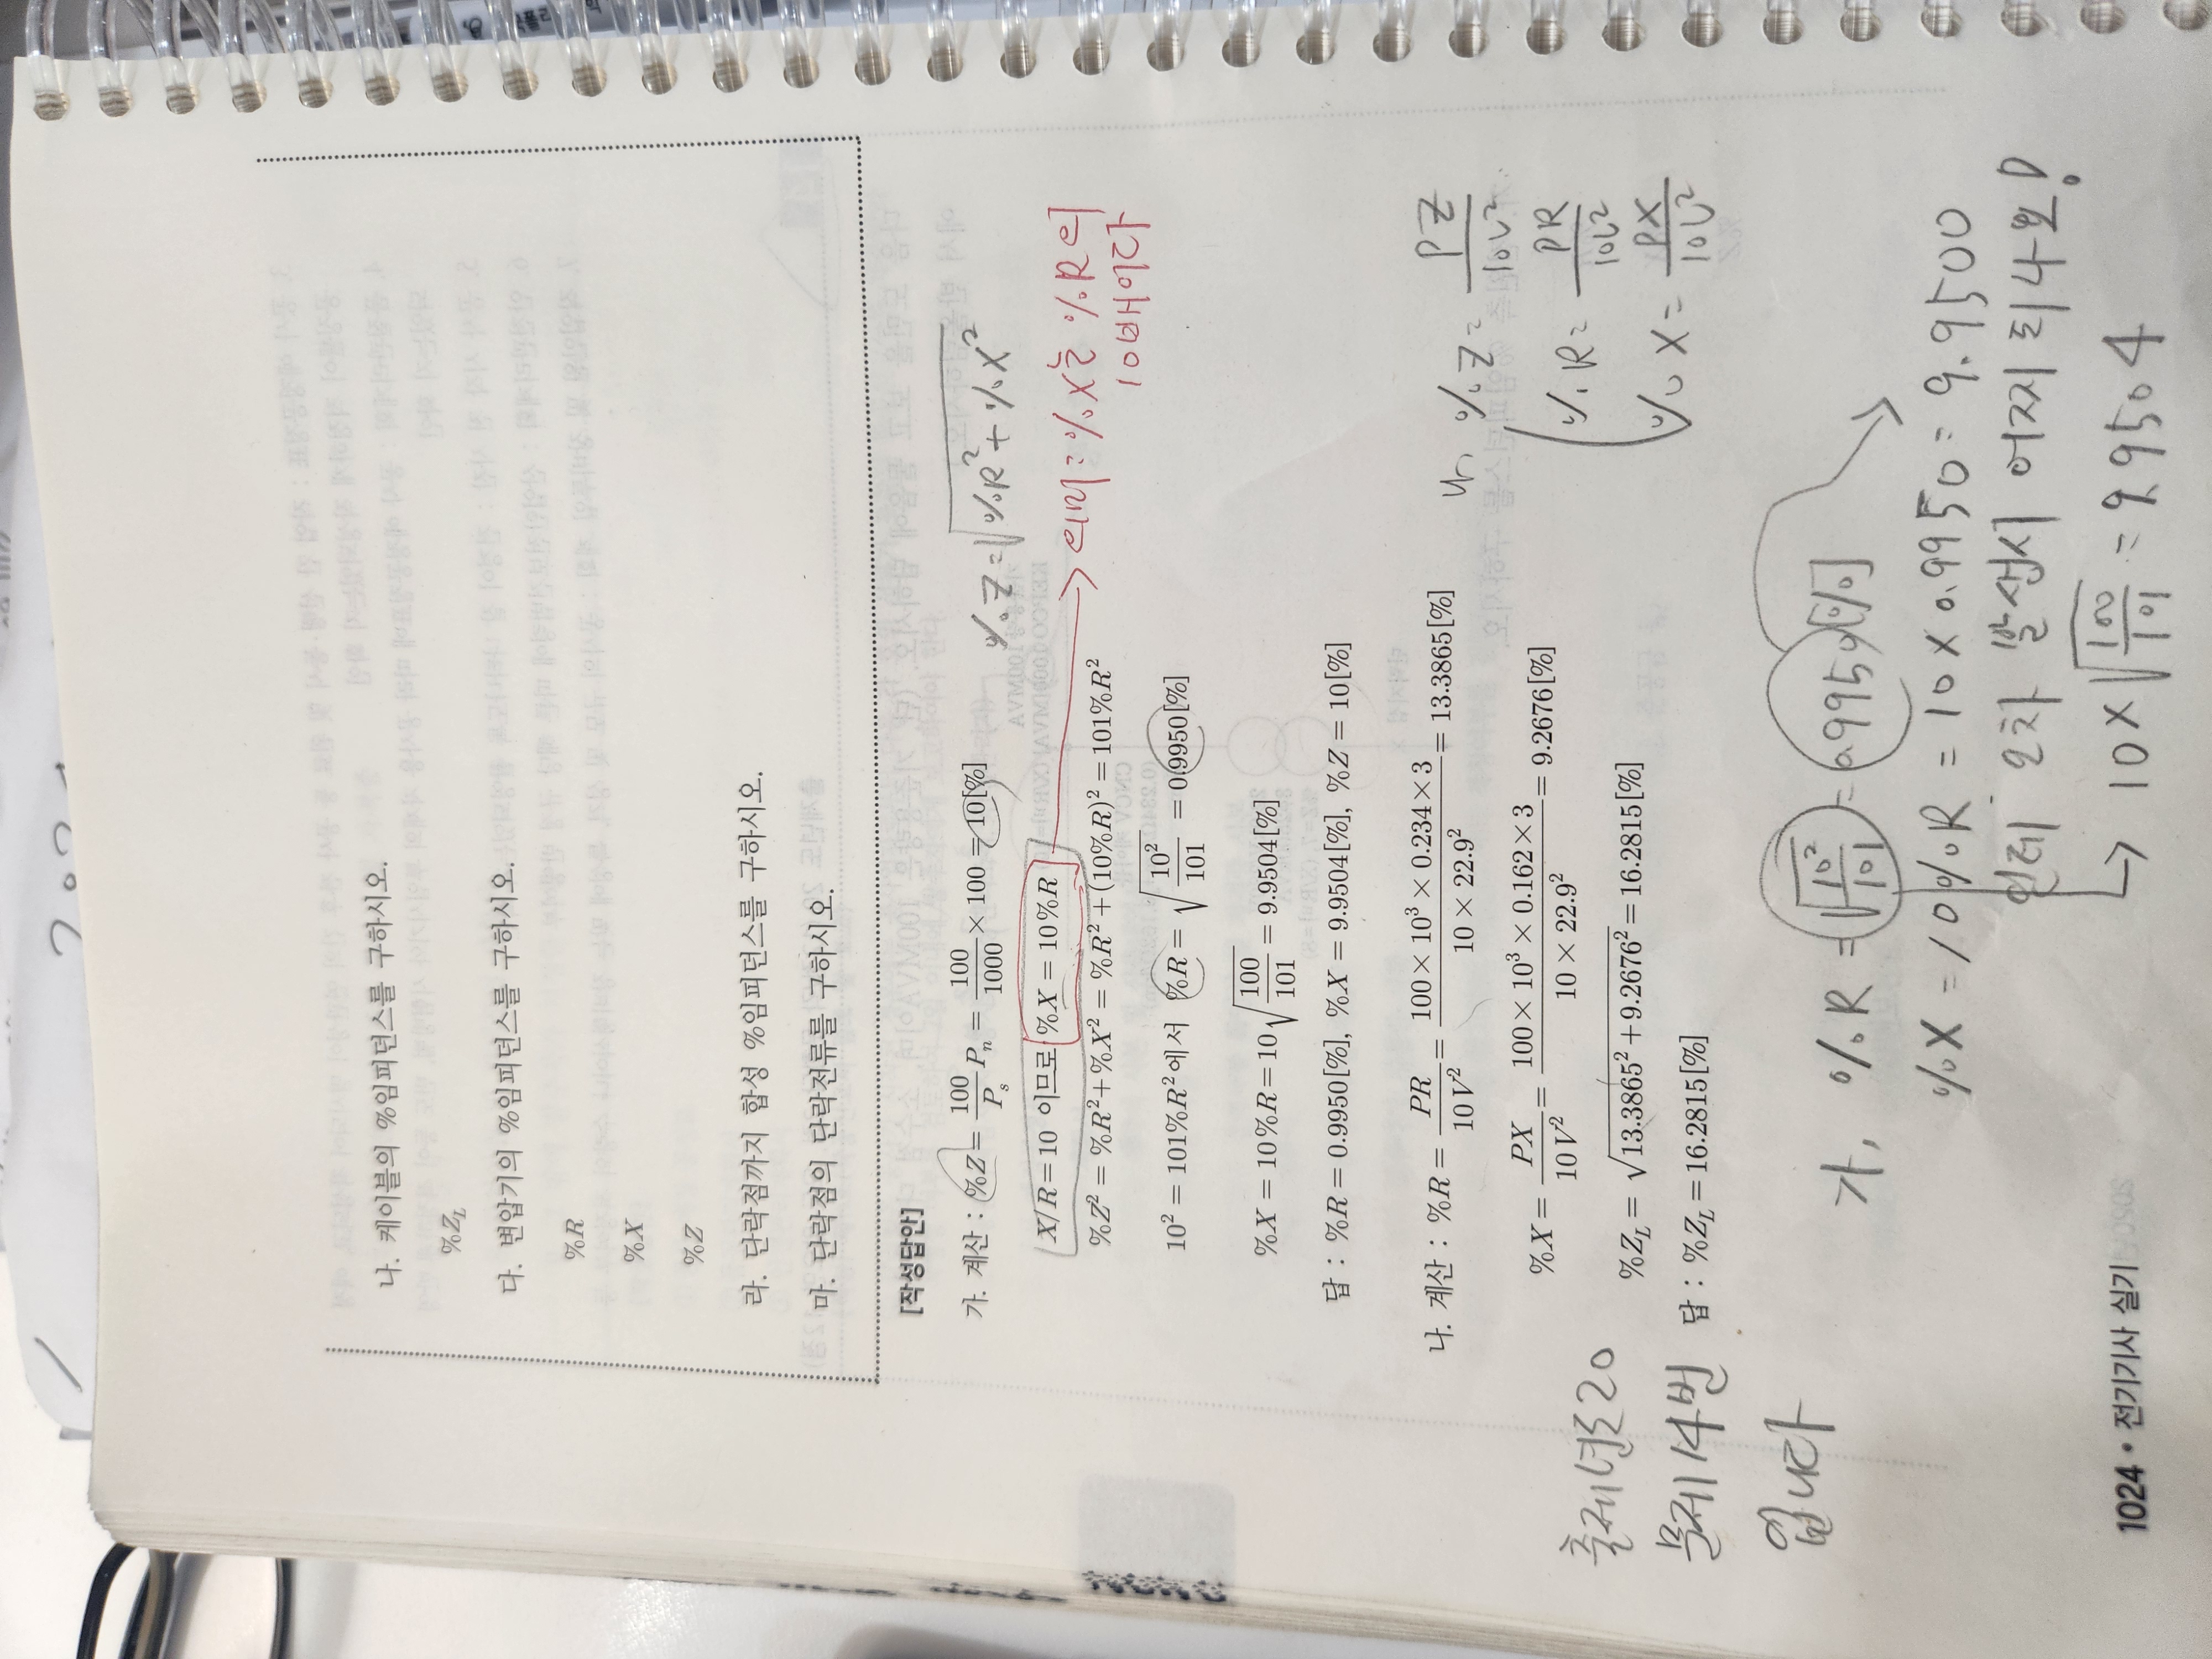 나. 케이블의 %임피던스를 구하시오.
%Z_L
다. 변압기의 %임피던스를 구하시오.
%R
%X
%Z
라. 단락점까지 합성 %임피던스를 구하시오.
마. 단락점의 단락전류를 구하시오.
[작성답안]
가. 계산 : %Z = 100/P_s P_n = 100/1000 × 100 = 10[%]
%Z = √(%R² + %X²)
X/R = 10 이므로 %X = 10%R
→ 의미 : %X는 %R의
10배이다
%Z² = %R² + %X² = %R² + (10%R)² = 101%R²
10² = 101%R²에서 %R = √(10²/101) = 0.9950[%]
%X = 10%R = 10√(100/101) = 9.9504[%]
답 : %R = 0.9950[%], %X = 9.9504[%], %Z = 10[%]
나. 계산 : %R = PR/10V² = 100×10³×0.234×3 / 10×22.9² = 13.3865[%]
%X = PX/10V² = 100×10³×0.162×3 / 10×22.9² = 9.2676[%]
%Z_L = √(13.3865² + 9.2676²) = 16.2815[%]
답 : %Z_L = 16.2815[%]
나 %Z = PZ/10V²
%R = PR/10V²
%X = PX/10V²
출제년도 20
문제 14번
입니다
가, %R = √(10²/101) = 0.9950[%]
%X = 10%R = 10 × 0.9950 = 9.9500
인데 오차 발생시 어찌 되나요?
→ 10 × √(100/101) = 9.9504
1024 • 전기기사 실기